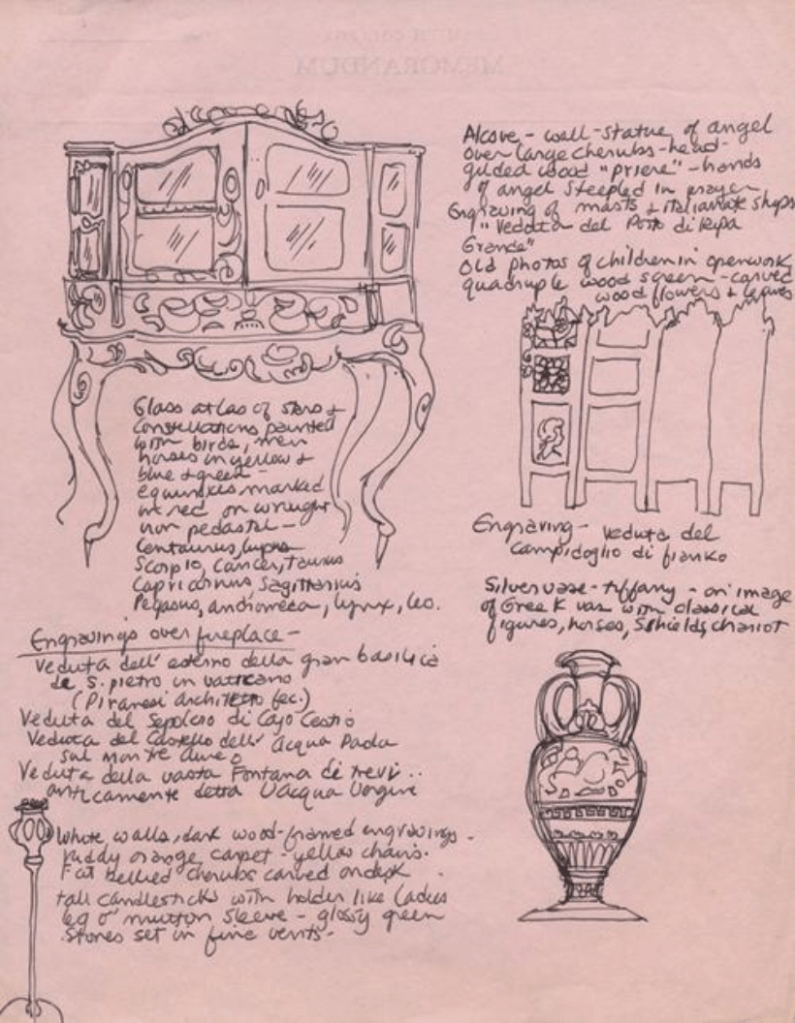 MEMORANDUM
Alcove - wall-statue of angel
over large cherubs-head-
gilded wood "priere" - hands
of angel steepled in prayer
Engraving of masts & italianate ships
"Veduta del Porto di Ripa
Grande"
Old photos of children in openwork
quadruple wood screen - carved
wood flowers & leaves
Glass atlas of stars &
Constellations painted
with birds, men
horses in yellow &
blue & green -
equinoxes marked
in red on wrought
iron pedastal -
Centaurus, lupus
Scorpio, Cancer, Taurus
Capricornus Sagittarius
Pegasus, andromeda, lynx, leo.
Engraving - Veduta del
Campidoglio di fianko
Silver vase - tiffany - on image
of Greek vase with classical
figures, horses, Shields, chariot
Engravings over fireplace -
Veduta dell' esterno della gran basilica
de S. pietro in vaticano
(Piranesi architetto fec.)
Veduta del Sepolcro di Cajo Cestio
Veduta del Castello dell' acqua Paola
sul Monte aureo
Veduta della vasta Fontana di trevi ..
anticamente detta l'acqua Vergine
White walls, dark wood-framed engravings -
ruddy orange carpet - yellow chairs.
Fat bellied cherubs carved on desk
tall candlesticks with holder like ladies
leg o' mutton sleeve - glossy green
Stones set in fine vents -